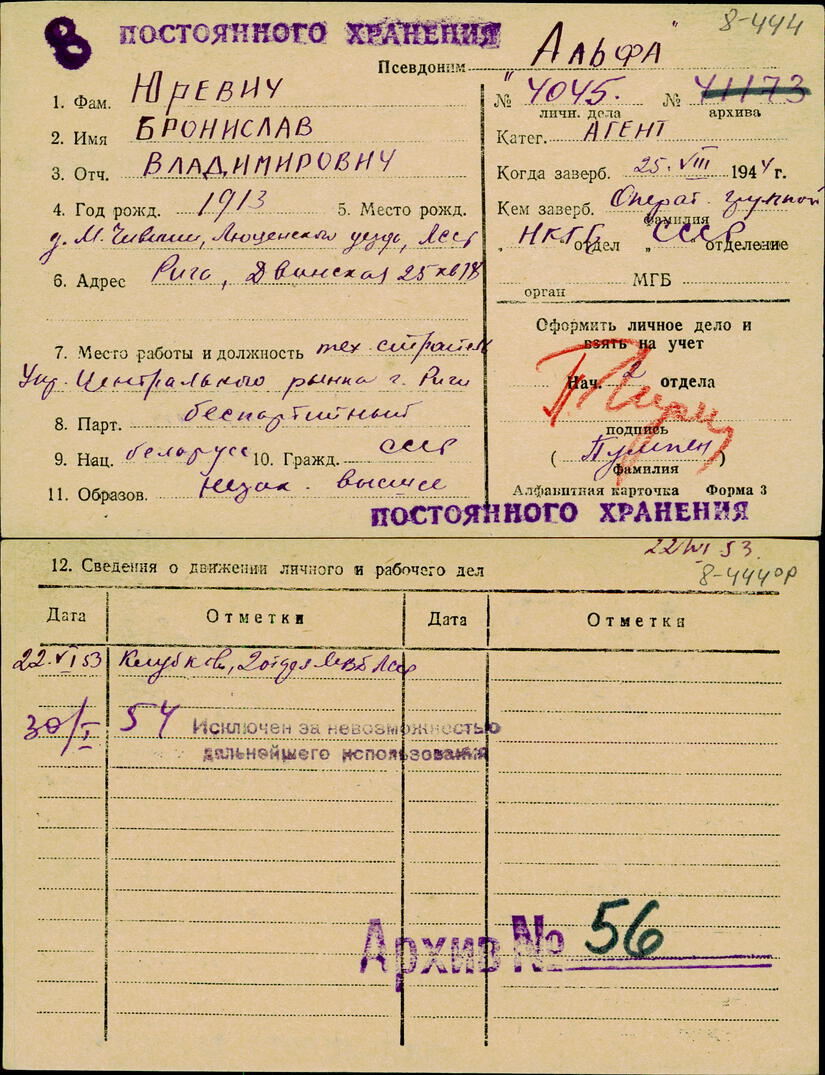 8 ПОСТОЯННОГО ХРАНЕНИЯ
8-444
Псевдоним "Альфа"
1. Фам. ЮРЕВИЧ
2. Имя БРОНИСЛАВ
3. Отч. ВЛАДИМИРОВИЧ
4. Год рожд. 1913 5. Место рожд.
д. М. Люценского уезда, ЛССР
6. Адрес Рига, Двинская 25 кв 18
7. Место работы и должность тех. строитель
Упр. Центрального рынка г. Риги
8. Парт. беспартийный
9. Нац. беларусс 10. Гражд. СССР
11. Образов. незак. высшее
№ 4045. № 41173
личн. дела архива
Катег. АГЕНТ
Когда заверб. 25. VIII 1944 г.
Кем заверб. Операт. группой
фамилия
" НКГБ отдел " СССР отделение
МГБ
орган
Оформить личное дело и
взять на учет
Нач. 2 отдела
подпись
( )
фамилия
Алфавитная карточка Форма 3
ПОСТОЯННОГО ХРАНЕНИЯ
22/VI 53.
12. Сведения о движении личного и рабочего дел
8-444 ор
Дата Отметки Дата Отметки
22.VI 53 2 отдел МВД ЛССР
30/I 54 Исключен за невозможностью
дальнейшего использования
Архив № 56